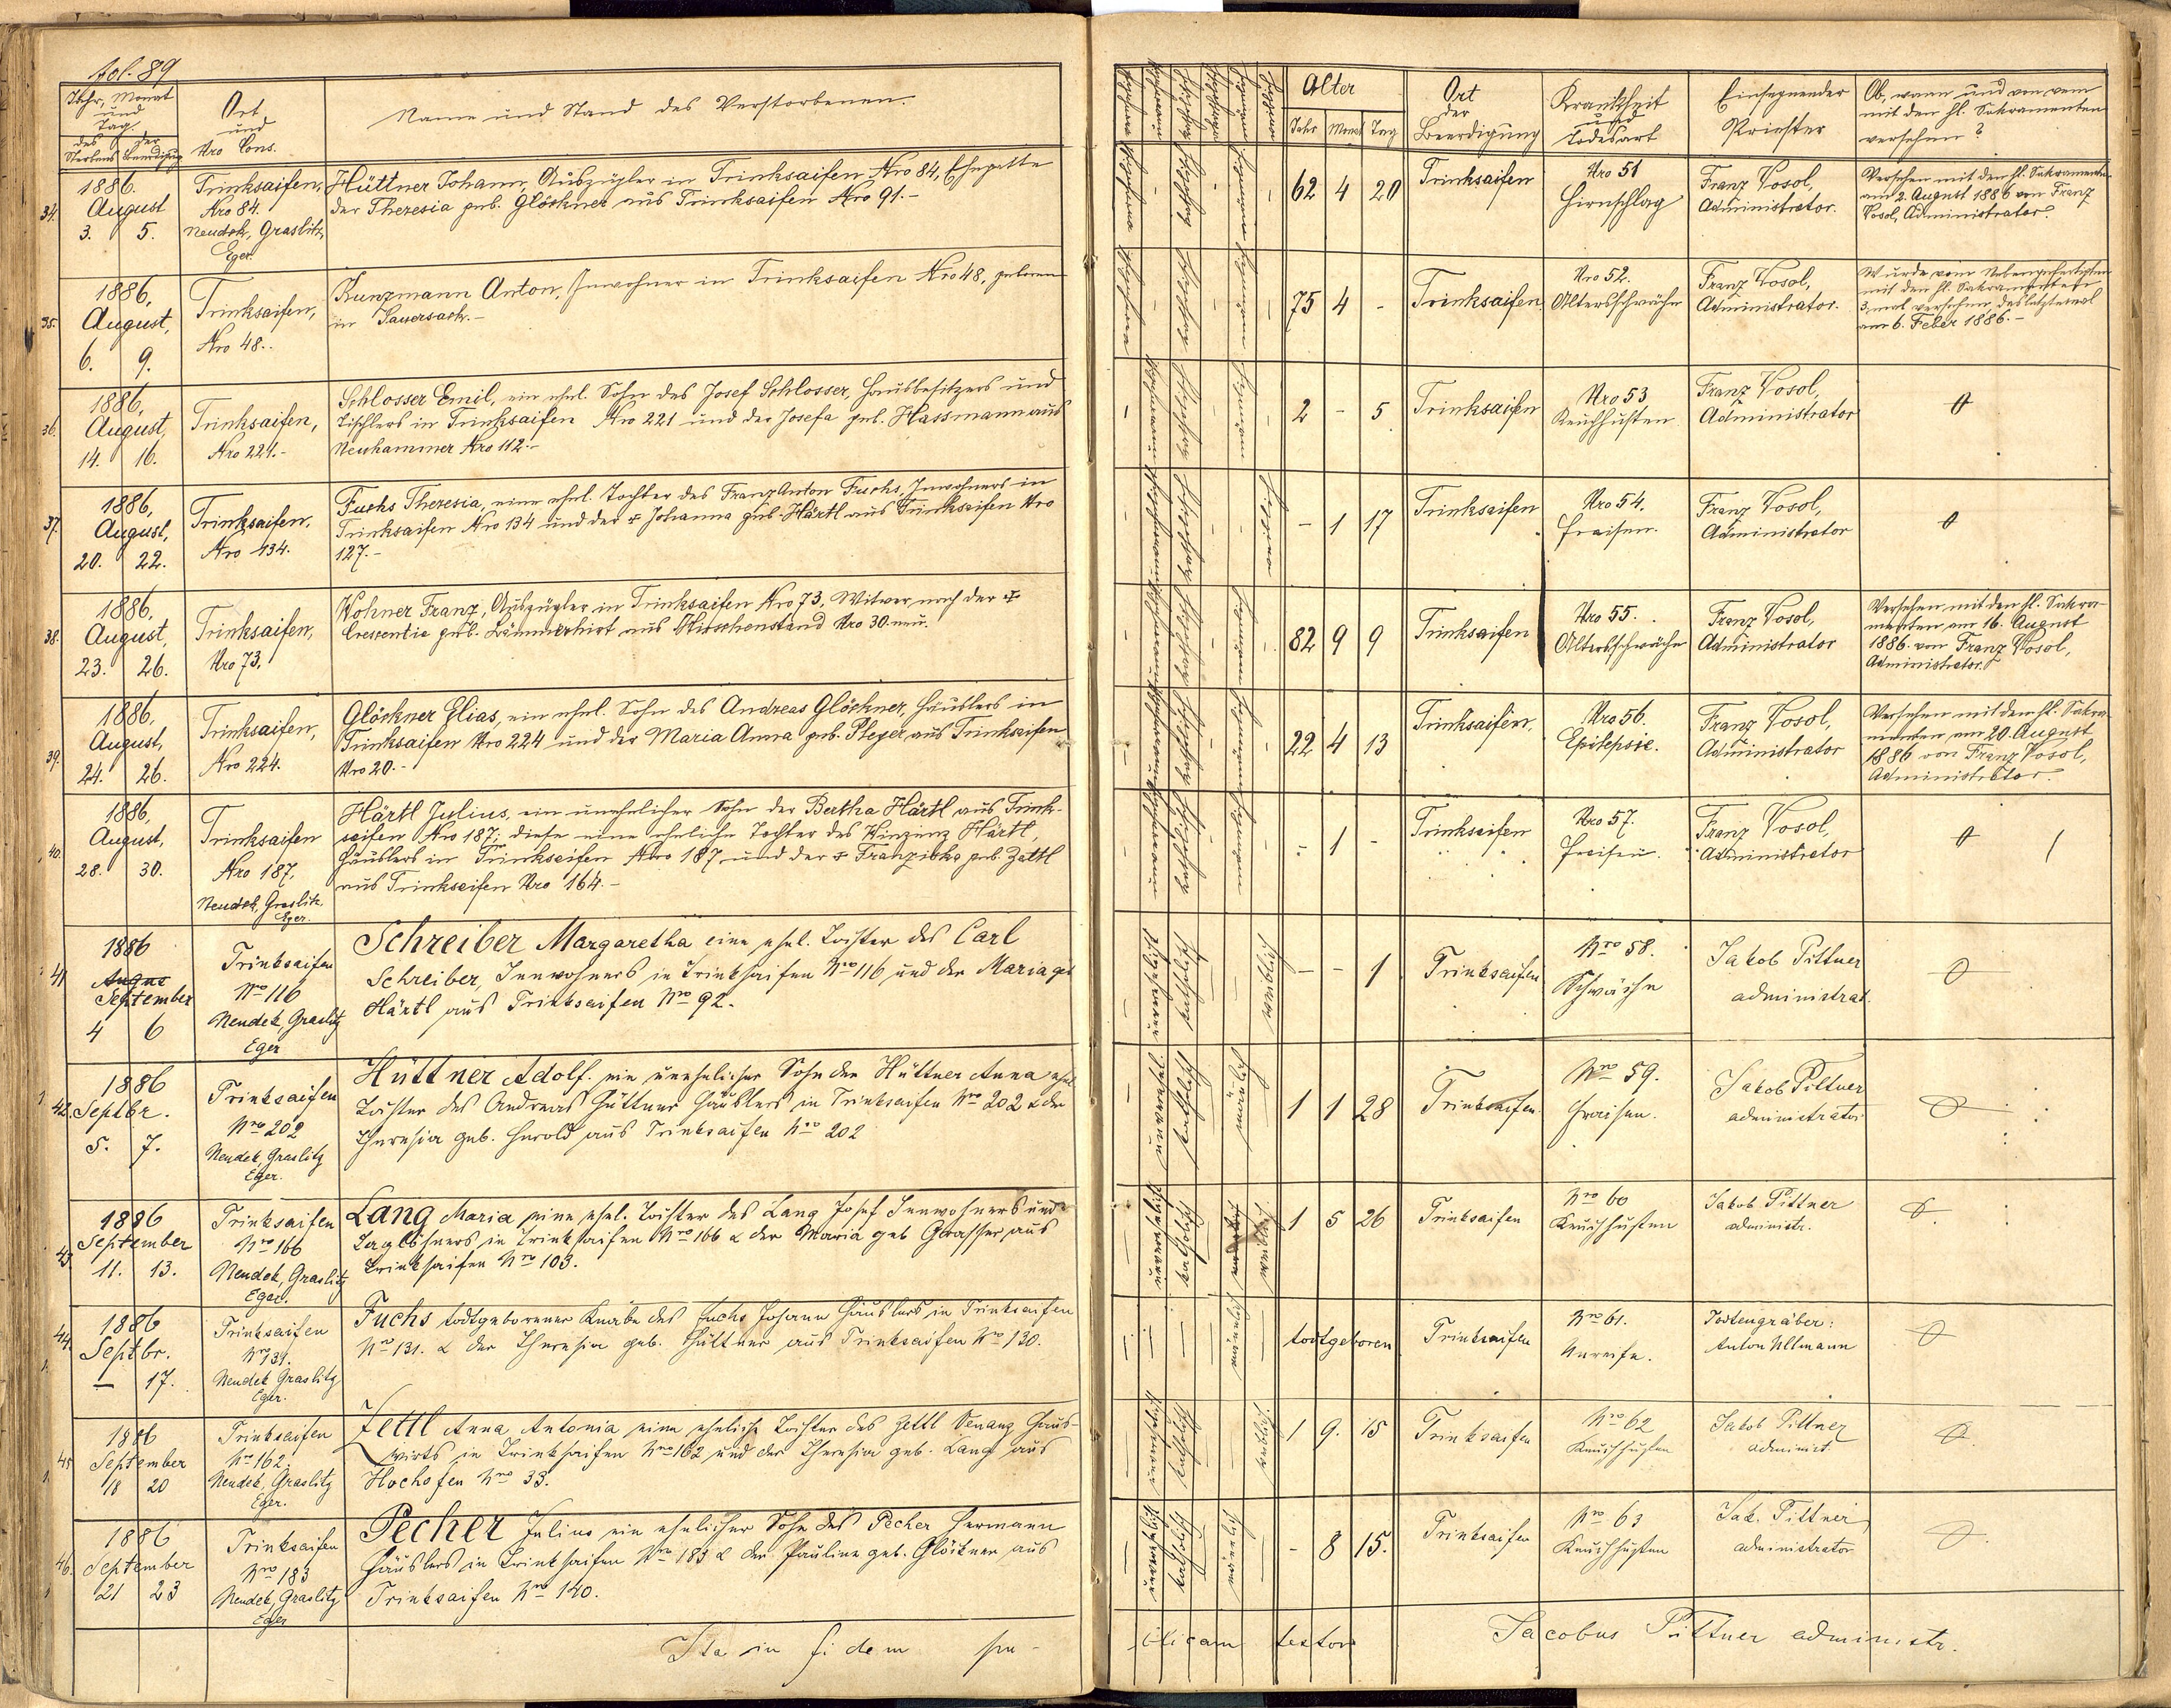 fol. 89
Jahr, Monat
und
Tag.
des Sterbens
der Beerdigung
Ort
und
Nro Cons.
Name und Stand des Verstorbenen.
Alter
Jahr Monat Tag
Ort
der
Beerdigung
Krankheit
und
Todesart
Einsegnender
Priester
Ob, wann und von wem
mit den hl. Sakramenten
versehen?
34.
1886.
August
3. 5.
Trinksaifen,
Nro 84.
Neudek, Graslitz,
Eger.
Hüttner Johann, Auszügler in Trinksaifen Nro 84, Ehegatte
der Theresia geb. Glöckner aus Trinksaifen Nro 91.-
62 4 20
Trinksaifen
Nro 51
Hirnschlag
Franz Vosol,
Administrator.
Versehen mit den hl. Sakramenten
am 2. August 1886 von Franz
Vosol, Administrator.
35.
1886,
August,
6. 9.
Trinksaifen,
Nro 48.
Kunzmann Anton, Inwohner in Trinksaifen Nro 48, geboren
in Sauersack.-
75 4 -
Trinksaifen
Nro 52.
Altersschwäche
Franz Vosol,
Administrator.
Wurde vom Nebengefertigten
mit den hl. Sakramenten
3 mal versehen, das letztemal
am 6. Feber 1886.-
36.
1886,
August,
14. 16.
Trinksaifen,
Nro 221.-
Schlosser Emil, ein ehel. Sohn des Josef Schlosser, Hausbesitzers und
Tischlers in Trinksaifen Nro 221 und der Josefa geb. Hassmann aus
Neuhammer Nro 112.-
2 - 5
Trinksaifen
Nro 53
Keuchhusten
Franz Vosol,
Administrator
37.
1886,
August,
20. 22.
Trinksaifen,
Nro 134.
Fuchs Theresia, eine ehel. Tochter des Franz Anton Fuchs, Inwohners in
Trinksaifen Nro 134 und der + Johanna geb. Härtl aus Trinksaifen Nro
127.-
- 1 17
Trinksaifen
Nro 54.
Fraisen.
Franz Vosol,
Administrator
38.
1886,
August,
23. 26.
Trinksaifen,
Nro 73.
Wohner Franz, Auszügler in Trinksaifen Nro 73, Witwer nach der +
Crescentia geb. Lämmerhirt aus Hirschenstand Nro 30 neu.
82 9 9
Trinksaifen
Nro 55.
Altersschwäche
Franz Vosol,
Administrator
Versehen mit den hl. Sakra-
menten am 16. August
1886 von Franz Vosol,
Administrator.
39.
1886,
August,
24. 26.
Trinksaifen,
Nro 224.
Glöckner Elias, ein ehel. Sohn des Andreas Glöckner, Häuslers in
Trinksaifen Nro 224 und der Maria Anna geb. Pleyer aus Trinksaifen
Nro 20.-
22 4 13
Trinksaifen,
Nro 56.
Epilepsie.
Franz Vosol,
Administrator
Versehen mit den hl. Sakra-
menten am 20. August
1886 von Franz Vosol,
Administrator.
40.
1886,
August,
28. 30.
Trinksaifen
Nro 187,
Neudek, Graslitz
Eger.
Härtl Julius, ein unehelicher Sohn der Bertha Härtl aus Trink-
saifen Nro 187; diese eine eheliche Tochter des Vinzenz Härtl,
Häuslers in Trinksaifen Nro 187 und der + Franziska geb. Zettl
aus Trinksaifen Nro 164.-
- 1 -
Trinksaifen
Nro 57.
Fraisen.
Franz Vosol,
Administrator
41
1886
September
4 6
Trinksaifen
Nro 116
Neudek, Graslitz
Eger
Schreiber Margaretha eine ehel. Tochter des Carl
Schreiber, Innwohners in Trinksaifen Nro 116 und der Maria geb
Härtl aus Trinksaifen Nro 92.
- - 1
Trinksaifen
Nro 58.
Schwäche
Jakob Pittner
administrat.
42.
1886
Septbr.
5. 7.
Trinksaifen
Nro 202
Neudek, Graslitz
Eger.
Hüttner Adolf. ein unehelicher Sohn der Hüttner Anna ehel
Tochter des Andreas Hüttner Häuslers in Trinksaifen Nro 202 & der
Theresia geb. Harold aus Trinksaifen Nro 202
1 1 28
Trinksaifen
Nro 59.
Fraisen.
Jakob Pittner
administrator
43.
1886
September
11. 13.
Trinksaifen
Nro 166
Neudek, Graslitz
Eger.
Lang Maria eine ehel. Tochter des Lang Josef Innwohners und
Taglöhners in Trinksaifen Nro 166 & der Maria geb Grasser aus
Trinksaifen Nro 103.
1 5 26
Trinksaifen
Nro 60
Keuchhusten
Jakob Pittner
administr.
44.
1886
Septbr.
- 17.
Trinksaifen
Nro 131.
Neudek Graslitz
Eger.
Fuchs todtgeborener Knabe des Fuchs Johann Häuslers in Trinksaifen
Nro 131. & der Theresia geb. Hüttner aus Trinksaifen Nro 130.
todtgeboren
Trinksaifen
Nro 61.
Unreife.
Todtengräber:
Anton Ullmann
45
1886
September
18 20
Trinksaifen
Nro 162.
Neudek, Graslitz
Eger.
Zettl Anna Antonia eine eheliche Tochter des Zettl Venanz Haus-
wirts in Trinksaifen Nro 162 und der Theresia geb. Lang aus
Hochofen Nro 33.
1 9. 15
Trinksaifen
Nro 62
Keuchhusten
Jakob Pittner
administ.
46.
1886
September
21 23
Trinksaifen
Nro 183
Neudek, Graslitz
Eger
Pecher Julius ein ehelicher Sohn des Pecher Hermann
Häuslers in Trinksaifen Nro 183 & der Pauline geb. Glöckner aus
Trinksaifen Nro 140.
- 8 15.
Trinksaifen
Nro 63
Keuchhusten
Jak. Pittner
administrator
Ita in fidem pu-
blicam testor Jacobus Pittner administr.